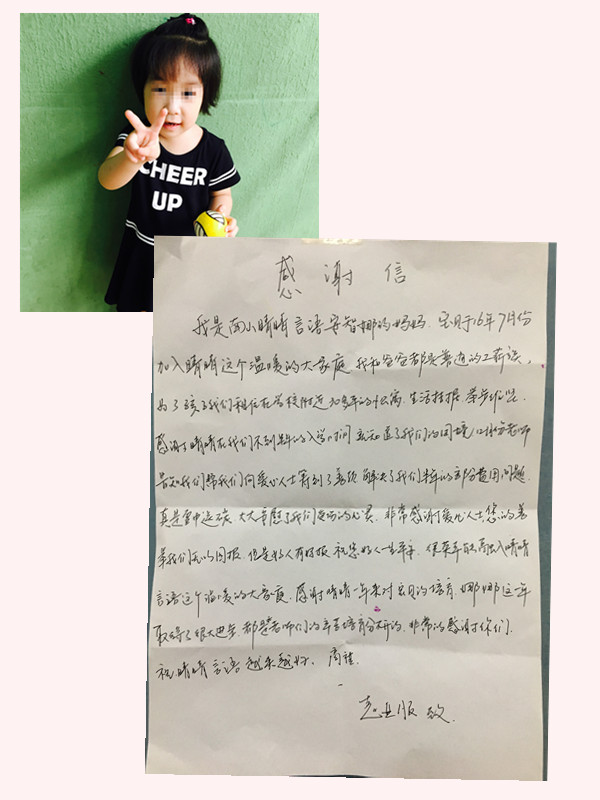 CHEER
UP
感谢信
我是南山晴晴言语安智娜的妈妈．宝贝于16年7月份
加入晴晴这个温暖的大家庭．我和爸爸都是普通的工薪族，
为了孩子我们租住在学校附近
生活拮据
感谢晴晴在我们不到半年的入学时间就知道了我们的困境
我们帮我们向爱心人士筹到了善款 解决了我们半年的部分费用问题．
真是雪中送炭 大大 了我们 的心灵．非常感谢爱心人士您的善
举我们无以回报．但是好人有好报 祝您好人一生平安．
晴晴
言语这个温暖的大家庭．感谢晴晴一年来对宝贝的培育．娜娜这一年
取得了很大进步．都是老师们的辛苦培育分不开的．非常的感谢你们．
祝晴晴言语越来越好．
致．